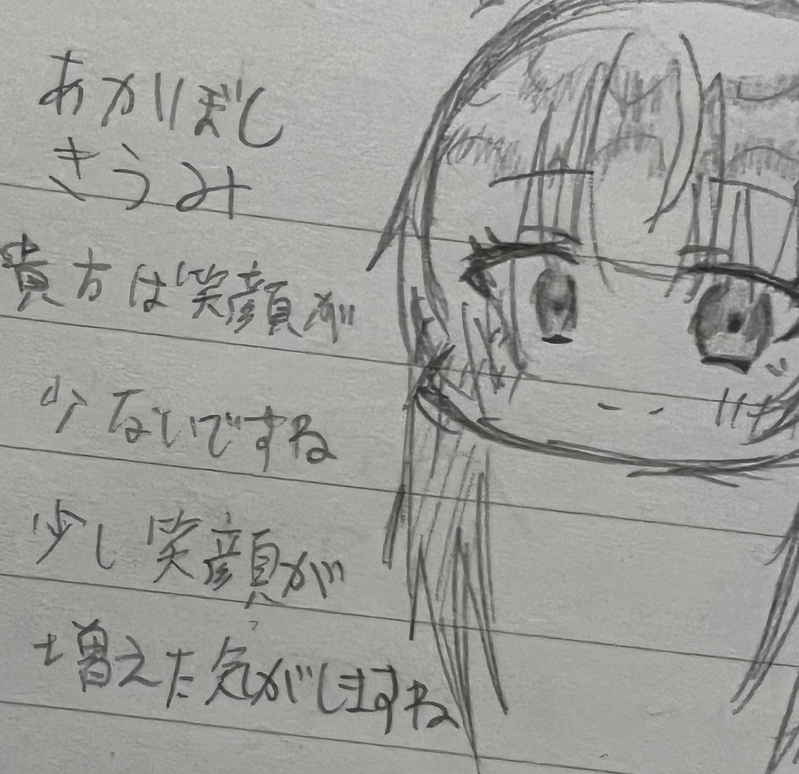 あかりぼし
きうみ
貴方は笑顔が
少ないですね
少し笑顔が
増えた気がしますね